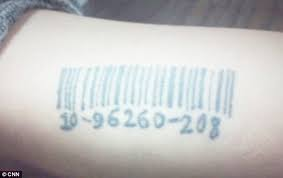 10-96260-208
© CNN